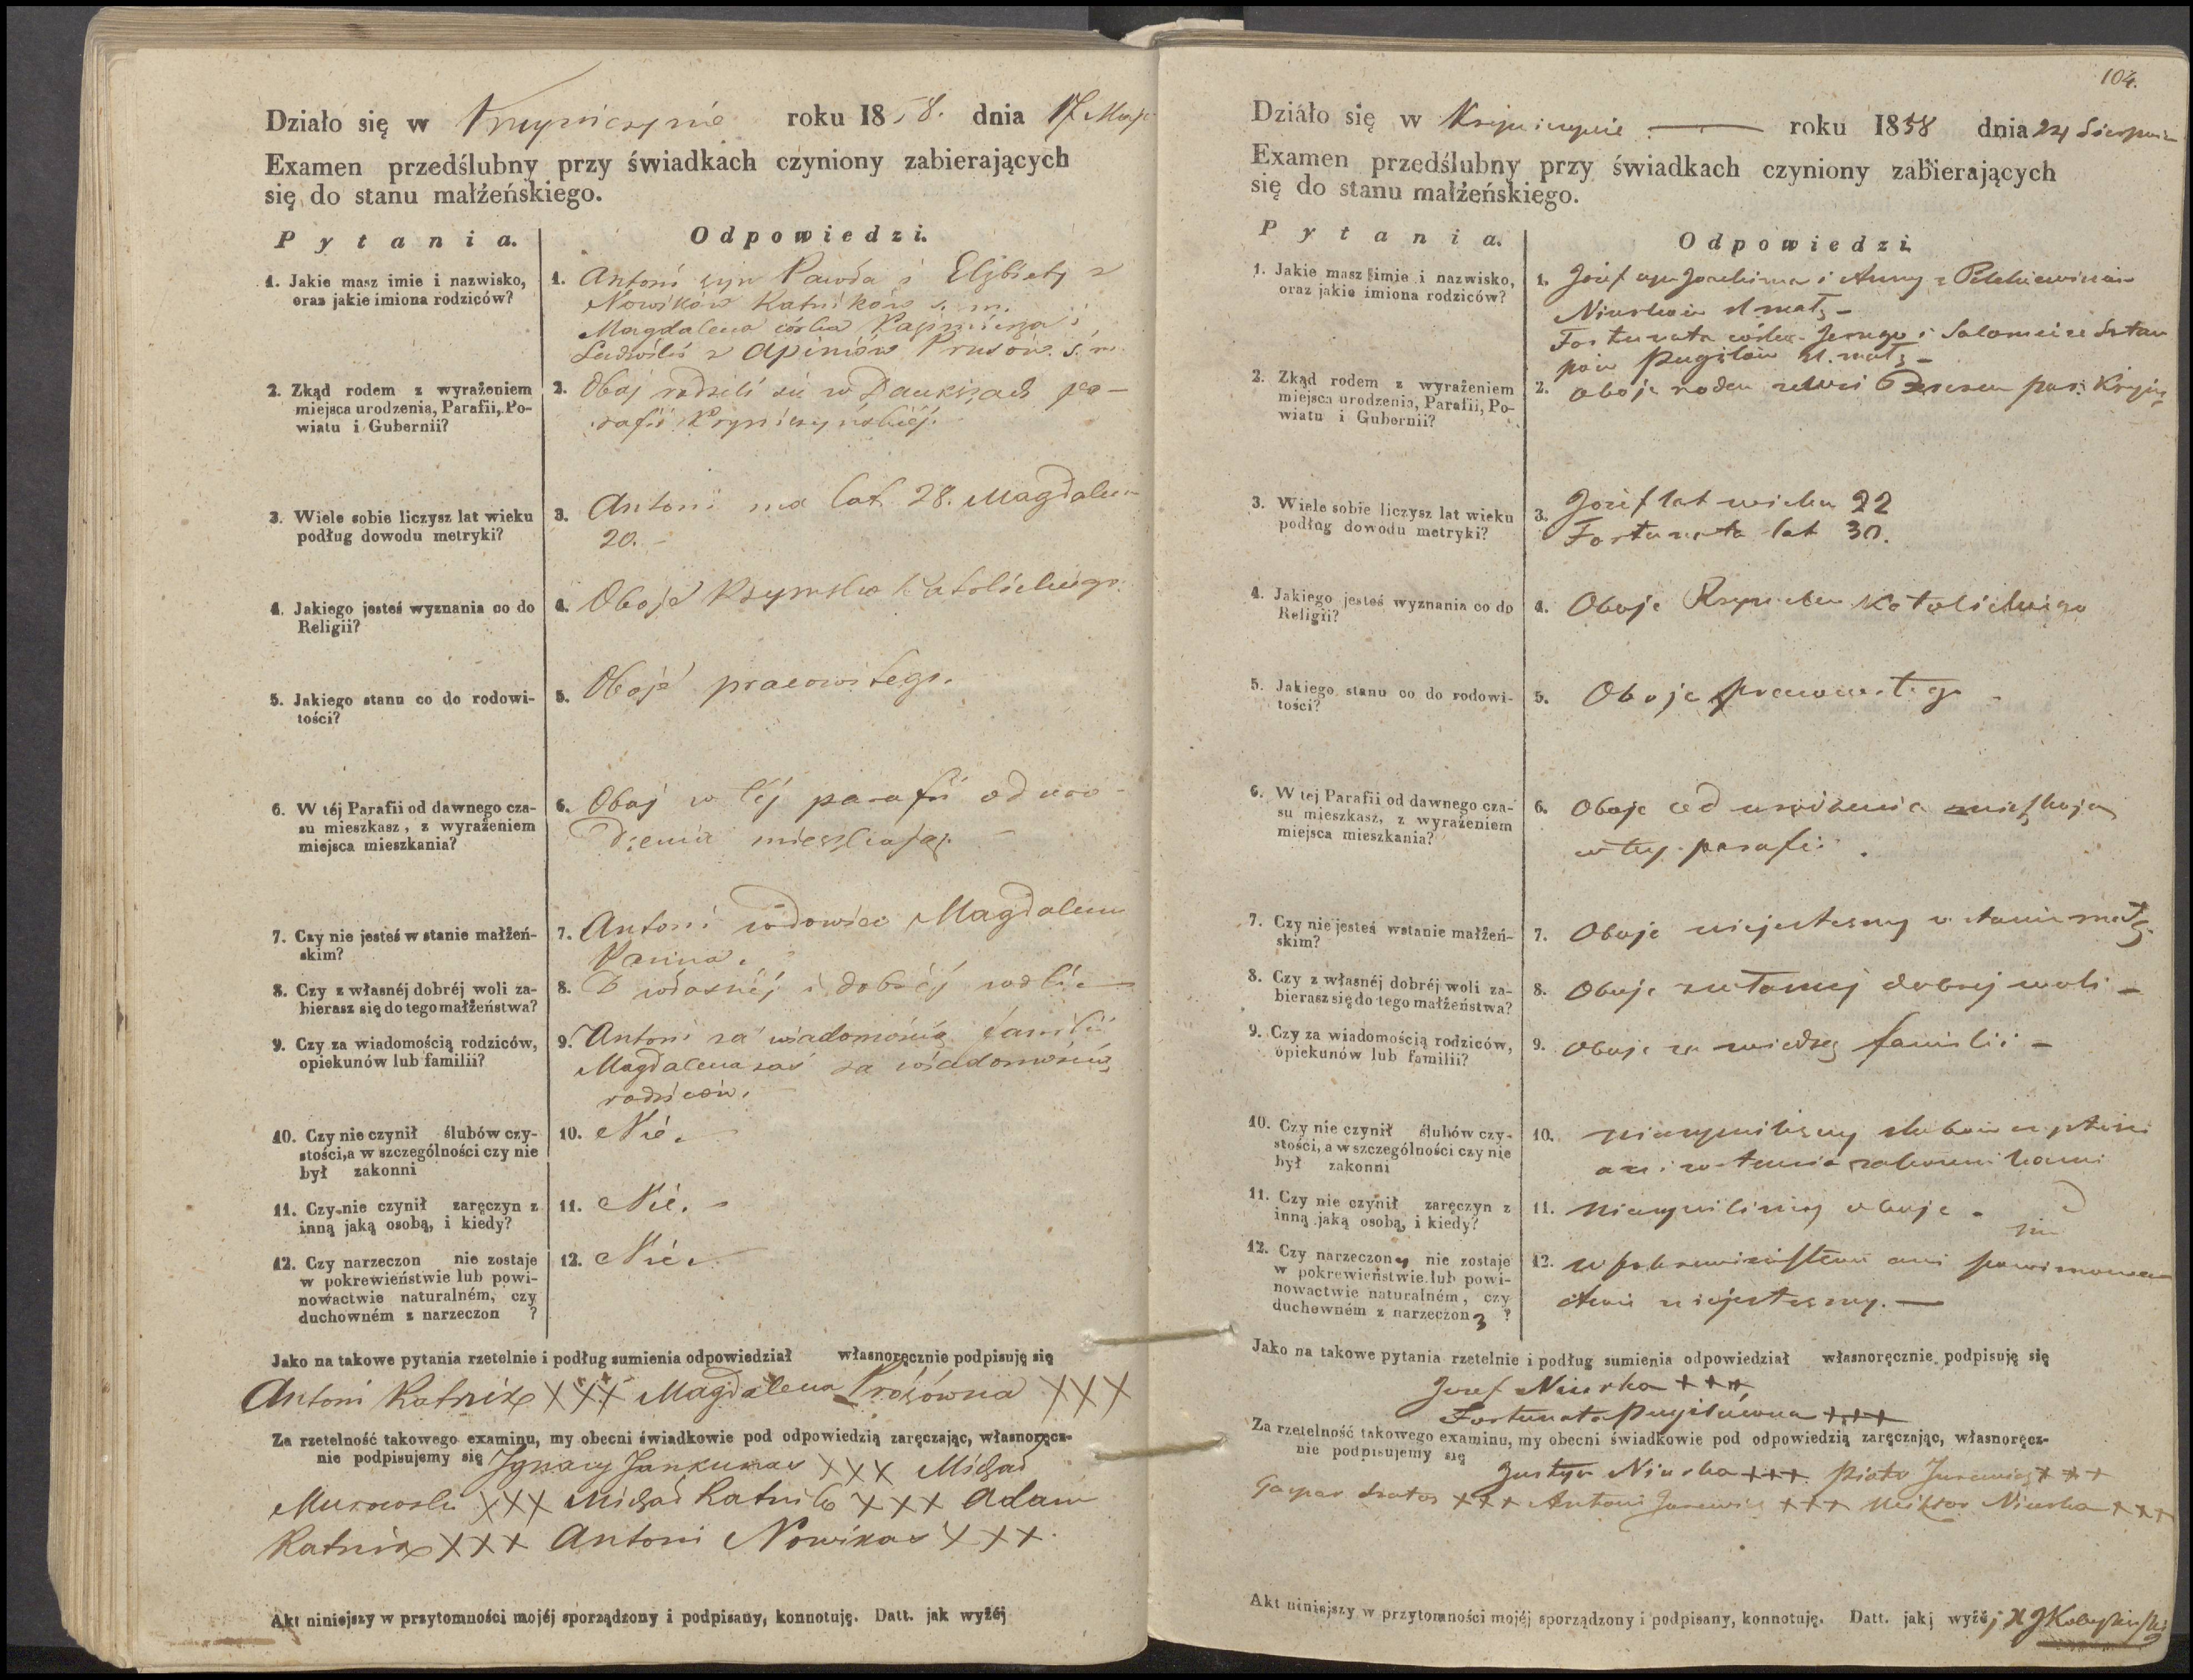 Działo się w Krypniczynie roku 1858. dnia 17 Maja
Examen przedślubny przy świadkach czyniony zabierających
się do stanu małżeńskiego.
Pytania.
Odpowiedzi.
1. Jakie masz imie i nazwisko,
oraz jakie imiona rodziców?
1. Antoni syn Pawła i Elżbiety z
Nowików Katników s. m.
Magdalena córka Kazimierza i
Ludwiki z Apiniów Prusów s. m.
2. Zkąd rodem z wyrażeniem
miejsca urodzenia, Parafii, Po-
wiatu i Gubernii?
2. Obaj rodzili się w Daukszach pa-
rafii
3. Wiele sobie liczysz lat wieku
podług dowodu metryki?
3. Antoni ma lat 28. Magdalena
20. -
4. Jakiego jesteś wyznania co do
Religii?
4. Oboje Rzymsko Katolickiego.
5. Jakiego stanu co do rodowi-
tości?
5. Oboje pracowitego.
6. W téj Parafii od dawnego cza-
su mieszkasz, z wyrażeniem
miejsca mieszkania?
6. Obaj w téj parafii od uro-
dzenia mieszkają. -
7. Czy nie jesteś w stanie małżeń-
skim?
7. Antoni wdowiec Magdalena
Panna.
8. Czy z własnéj dobréj woli za-
bierasz się do tego małżeństwa?
8. Z własnéj i dobréj woli. -
9. Czy za wiadomością rodziców,
opiekunów lub familii?
9. Antoni za wiadomością familii
Magdalena zaś za wiadomością
rodziców.
10. Czy nie czynił ślubów czy-
stości, a w szczególności czy nie
był zakonni
10. Nie.
11. Czy nie czynił zaręczyn z
inną jaką osobą, i kiedy?
11. Nie. -
12. Czy narzeczon nie zostaje
w pokrewieństwie lub powi-
nowactwie naturalném, czy
duchowném z narzeczon ?
12. Nie.
Jako na takowe pytania rzetelnie i podług sumienia odpowiedział własnoręcznie podpisuję się
Antoni Katnik XXX Magdalena Prusówna XXX
Za rzetelność takowego examinu, my obecni świadkowie pod odpowiedzią zaręczając, własnoręcz-
nie podpisujemy się Ignacy Jankunas XXX Michał
XXX Michał Katnik XXX Adam
Katnik XXX Antoni Nowikas XXX.
Akt niniejszy w przytomności mojéj sporządzony i podpisany, konnotuję. Datt. jak wyżéj
104.
Działo się w roku 1858 dnia 24 Sierpnia
Examen przedślubny przy świadkach czyniony zabierających
się do stanu małżeńskiego.
Pytania.
Odpowiedzi
1. Jakie masz imie i nazwisko,
oraz jakie imiona rodziców?
1. Józef syn Joachima i Anny z
Niurków sl małż -
Fortunata córka Jerzego i Salomei ze Szta
pów Pugżlów sl. małż -
2. Zkąd rodem z wyrażeniem
miejsca urodzenia, Parafii, Po-
wiatu i Gubernii?
2. Oboje rodem ze wsi par.
3. Wiele sobie liczysz lat wieku
podług dowodu metryki?
3. Józef lat wieku 22
Fortunata lat 30.
4. Jakiego jesteś wyznania co do
Religii?
4. Oboje Rzymsko Katolickiego
5. Jakiego stanu co do rodowi-
tości?
5. Oboje pracowitego -
6. W tej Parafii od dawnego cza-
su mieszkasz, z wyrażeniem
miejsca mieszkania?
6. Oboje od urodzenia mieszkają
w tej parafii.
7. Czy nie jesteś wstanie małżeń-
skim?
7. Oboje niejestesmy w stanie małż.
8. Czy z własnéj dobréj woli za-
bierasz się do tego małżeństwa?
8. Oboje z własnej dobrej woli -
9. Czy za wiadomością rodziców,
opiekunów lub familii?
9. Oboje za wiedzą familii -
10. Czy nie czynił ślubów czy-
stości, a w szczególności czy nie
był zakonni
10. nieczynilismy slubów czystosci
ani zakonnikami
11. Czy nie czynił zaręczyn z
inną jaką osobą, i kiedy?
11. nieczynilismy oboje.
12. Czy narzeczony nie zostaje
w pokrewieństwie lub powi-
nowactwie naturalném, czy
duchowném z narzeczoną ?
12. w pokrewieństwie ani powinowac
twie niejestesmy. -
Jako na takowe pytania rzetelnie i podług sumienia odpowiedział własnoręcznie podpisuję się
Józef Niurka +++
Fortunata +++
Za rzetelność takowego examinu, my obecni świadkowie pod odpowiedzią zaręczając, własnoręcz-
nie podpisujemy się Justyn Niurka +++ Piotr Jurewicz +++
Gaspar +++ Antoni Jurewicz +++ Wiktor Niurka +++
Akt niniejszy w przytomności mojéj sporządzony i podpisany, konnotuję. Datt. jak wyżéj